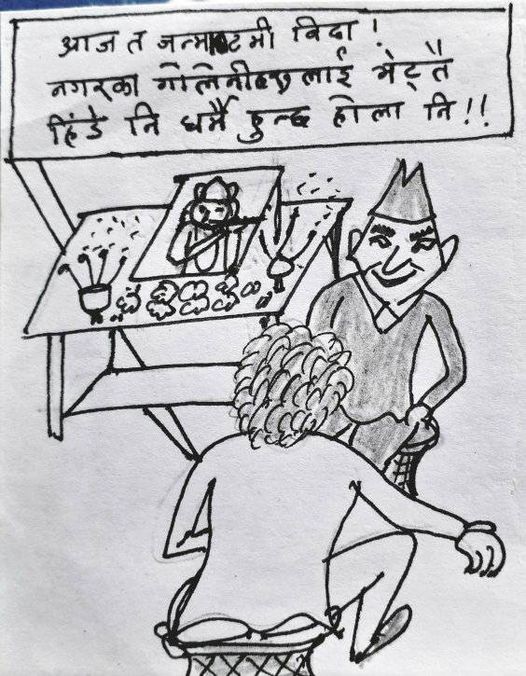 आज त जन्माष्टमी विदा !
नगरका गोलिनीहरुलाई भेट्तै
हिंडे नि धर्मै हुन्छ होला नि !!